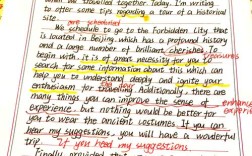 when we travelled together. Today, I'm writing
to offer some tips regarding a tour of a historial
site.
are scheduled
We schedule to go to the Forbidden City that
is located in Beijing, which has a profound history
and a large number of brilliant cherishes. To
treasures
begin with, It is of great necessity for you to
search for some information about this which can
help you to understand deeply and ignite your
enthusiasm for travelling. Additionally, there are
tour
many things you can improve the sense of
enhance
experience, but nothing would be better for
experience
you to wear the ancient costumes. If you can
hear my suggestions, you will have a wonderful
trip. If you heed my suggestions.
Finally,